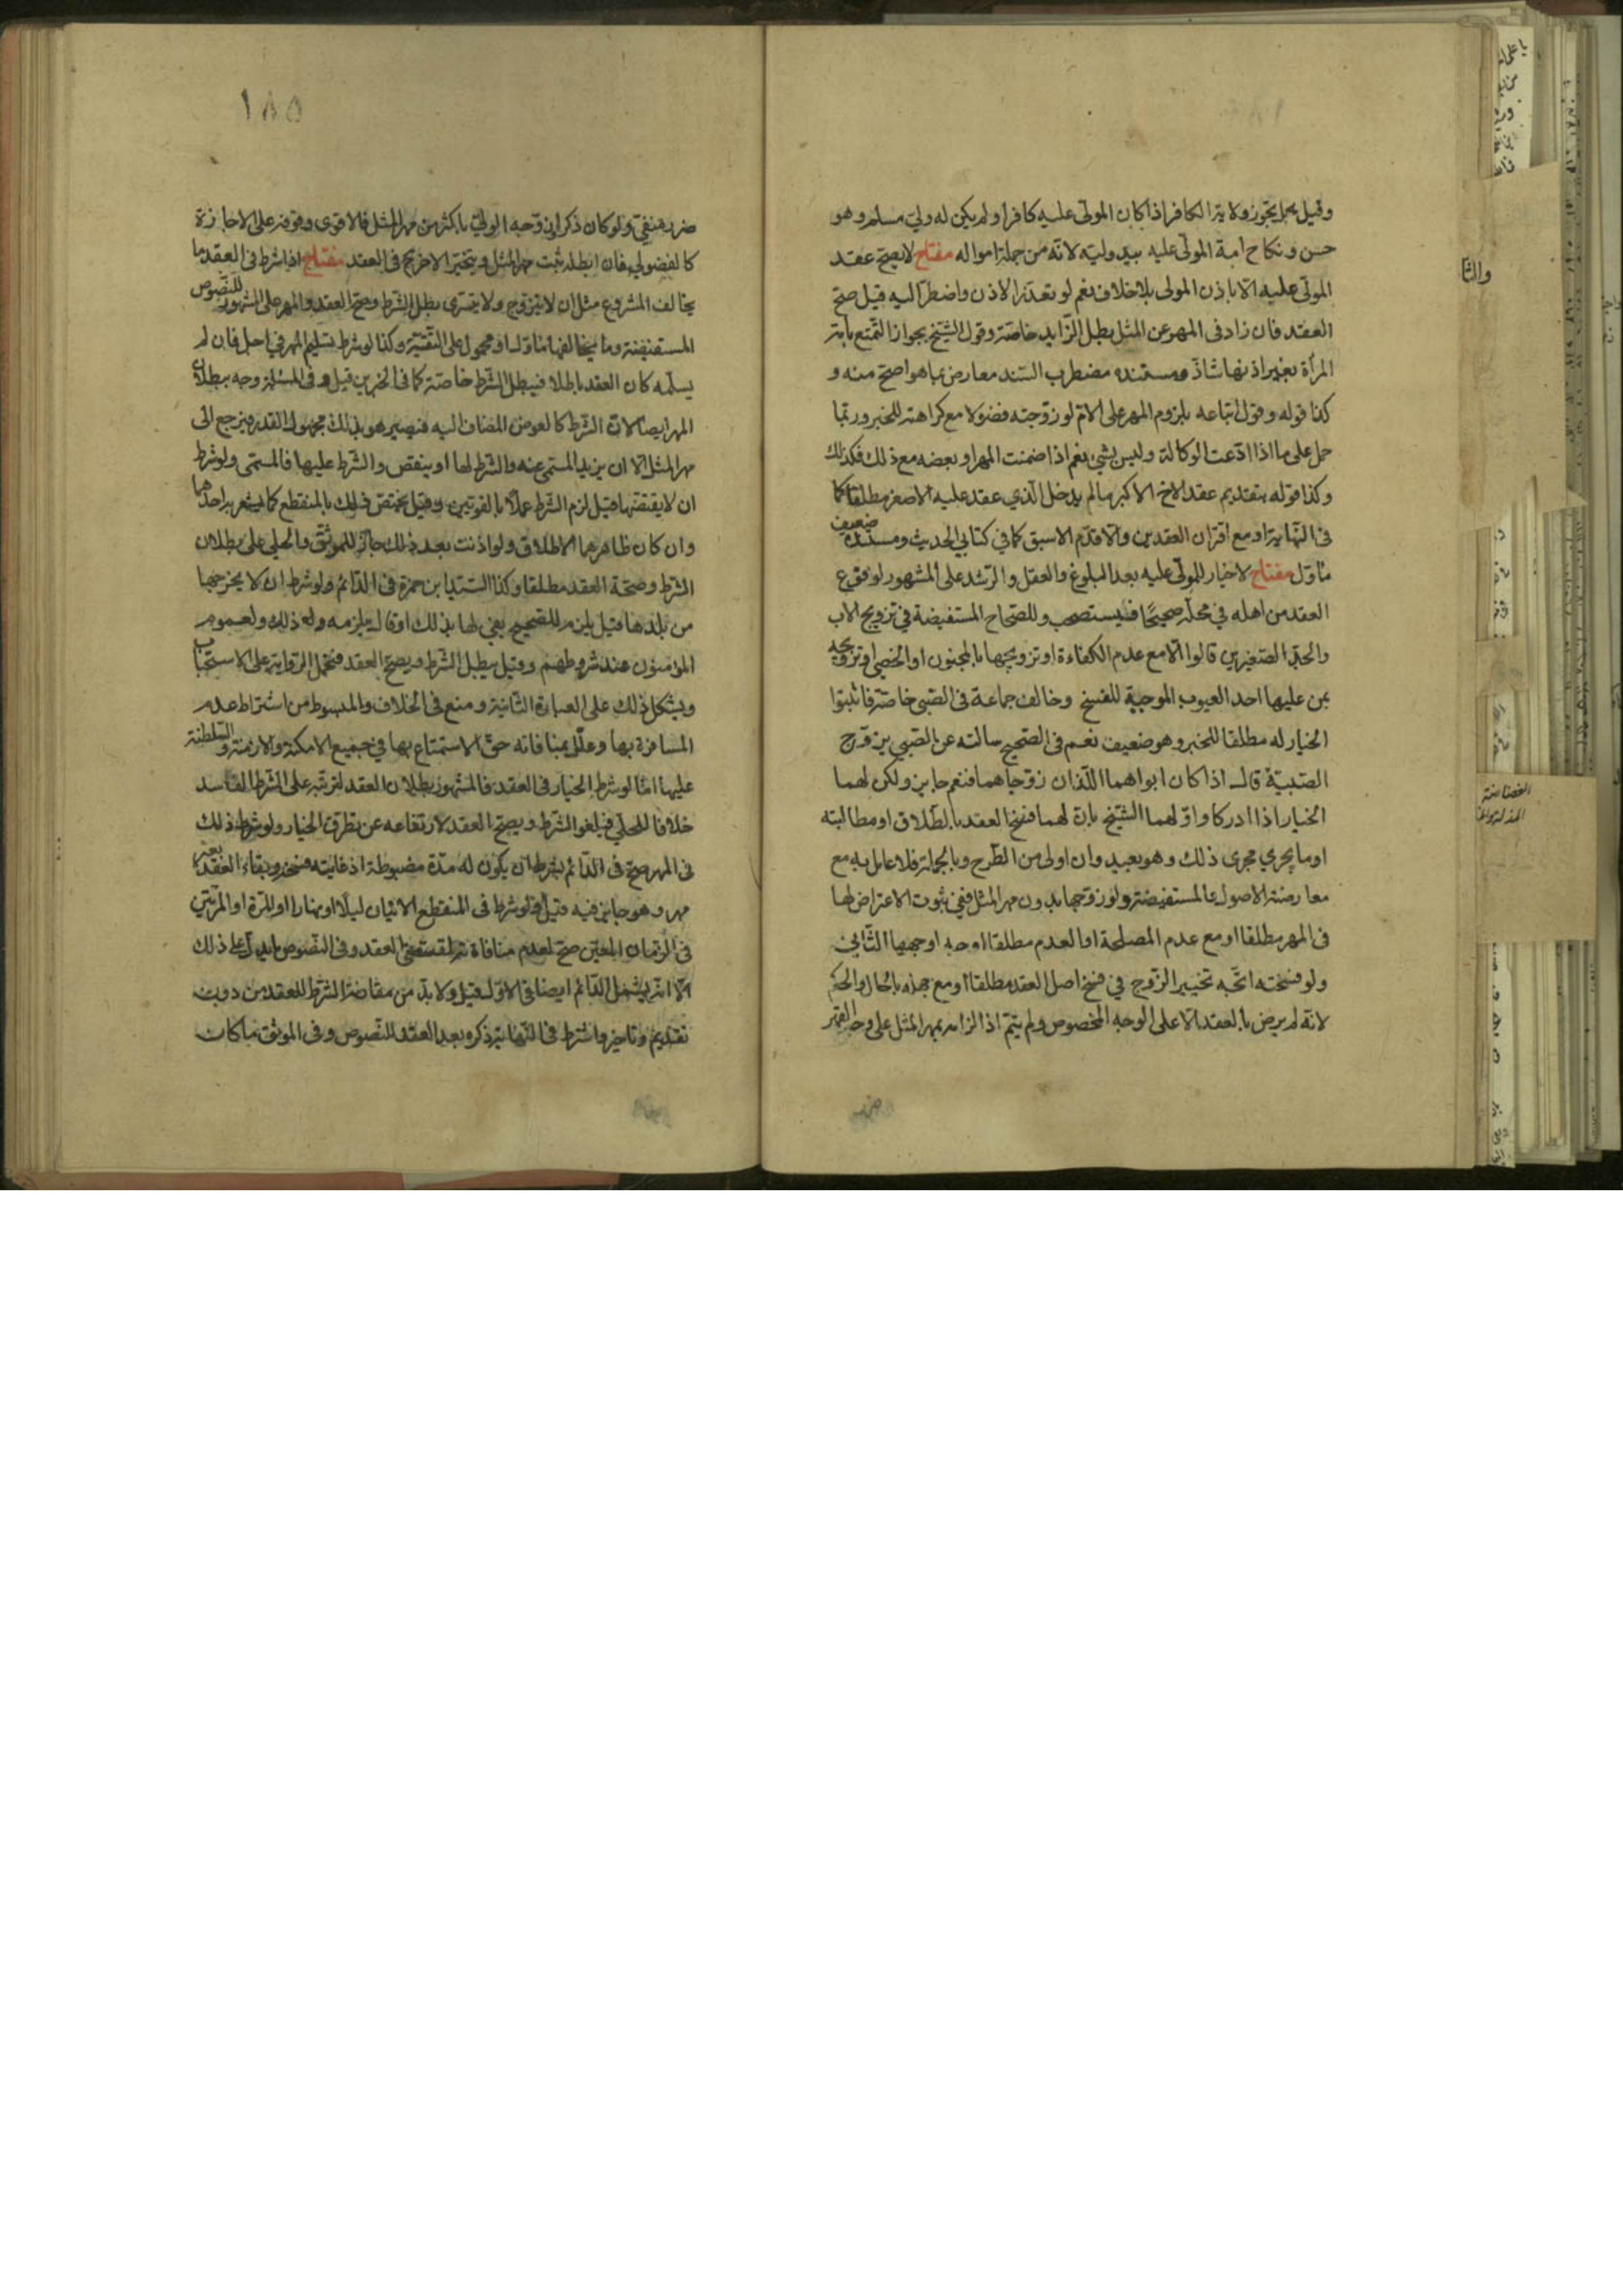 وقيل بل يجوز ولاية الكافر اذا كان المولى عليه كافرا ولم يكن له ولي مسلم وهو
حسن ونكاح امة المولى عليه بيد وليه لانه من جملة امواله مفتاح لا يصح عقد
المولى عليه الا باذن المولى بلا خلاف نعم لو تعذر الاذن واضطر اليه قيل صح
العقد فان زاد في المهر عن المثل بطل الزايد خاصة وقول الشيخ بجواز التمتع بامة
المرأة بغير اذنها شاذ ومستنده مضطرب السند معارض بما هو اصح منه و
كذا قوله وقول اتباعه بلزوم المهر على الام لو زوجته فضولا مع كراهته للخبر وربما
حمل على ما اذا ادعت الوكالة وليس بشيء نعم اذا ضمنت المهر او بعضه مع ذلك فكذلك
وكذا قوله بتقديم عقد الاخ الاكبر ما لم يدخل الذي عقد عليه الاصغر مطلقا كما
في النهاية او مع اقتران العقدين والا قدم الاسبق كما في كتابي الحديث ومستنده ضعيف
مأول مفتاح لا خيار للمولى عليه بعد البلوغ والعقل والرشد على المشهور لوقوع
العقد من اهله في محله صحيحا فيستصحب وللصحاح المستفيضة في تزويج الاب
والجد الصغيرين قالوا الا مع عدم الكفاءة او تزويجها بالمجنون او الخصي او تزويجه
بمن عليها احد العيوب الموجبة للفسخ وخالف جماعة في الصبي خاصة فاثبتوا
الخيار له مطلقا للخبر وهو ضعيف نعم في الصحيح سالته عن الصبي يزوج
الصبية قال اذا كان ابواهما اللذان زوجاهما فنعم جايز ولكن لهما
الخيار اذا ادركا واوّلهما الشيخ بان لهما فسخ العقد بالطلاق او مطالبته
او ما يجري مجرى ذلك وهو بعيد وان اولى من الطرح وبالجملة فلا عامل به مع
معارضته الاصول والمستفيضة ولو زوجها بدون مهر المثل ففي ثبوت الاعتراض لها
في المهر مطلقا او مع عدم المصلحة او العدم مطلقا اوجه اوجهها الثاني
ولو فسخته اتجه تخيير الزوج في فسخ اصل العقد مطلقا او مع جهله بالحال والحكم
لانه لم يرض بالعقد الا على الوجه المخصوص ولم يتم اذ الزامه بمهر المثل على وجه القهر
ضرر
١٨٥
ضرر منفي ولو كان ذكرا زوجه الولي باكثر من مهر المثل فالاقوى وقوفه على الاجازة
كالفضولي فان ابطله ثبت مهر المثل ويتخير الاخر في العقد مفتاح اذا شرط في العقد ما
يخالف المشروع مثل ان لا يتزوج ولا يتسرى بطل الشرط وصح العقد والمهر على المشهور للنصوص
المستفيضة وما يخالفها ماول او محمول على التقية وكذا لو شرط تسليم المهر في اجل فان لم
يسلمه كان العقد باطلا فيبطل الشرط خاصة كما في الخبرين قيل وفي المسئلة وجه ببطلان
المهر ايضا لان الشرط كالعوض المضاف اليه فيصير هو بذلك مجهول القدر فيرجع الى
مهر المثل الا ان يزيد المسمى عنه والشرط لها او ينقص والشرط عليها فالمسمى ولو شرط
ان لا يفتضها قيل لزم الشرط عملا بالقويين وقيل يختص ذلك بالمنقطع كما يشعر به احدهما
وان كان ظاهرهما الاطلاق ولو اذنت بعد ذلك جاز للموثق والحلي على بطلان
الشرط وصحة العقد مطلقا وكذا السيد ابن حمزة في الدائم ولو شرط ان لا يخرجها
من بلدها قيل يلزم للصحيح يفي لها بذلك او قال يلزمه ذلك ولعموم
المؤمنون عند شروطهم وقيل يبطل الشرط ويصح العقد فتحمل الرواية على الاستحباب
ويشكل ذلك على العبارة الثانية ومنع في الخلاف والمبسوط من اشتراط عدم
المسافرة بها وعلل بمنافاته حق الاستمتاع بها في جميع الامكنة والازمنة والسلطنة
عليها اما لو شرط الخيار في العقد فالمشهور بطلان العقد لترتبه على الشرط الفاسد
خلافا للحلي فيلغو الشرط ويصح العقد لارتفاعه عن تطرق الخيار ولو شرط ذلك
في المهر صح في الدائم بشرط ان يكون له مدة مضبوطة اذ غايته فسخه وبقاء العقد بغير
مهر وهو جايز فيه قيل ولو شرط في المنقطع الاتيان ليلا او نهارا او المرة او المرتين
في الزمان المعين صح لعدم منافاة شرط مقتضى العقد وفي النصوص ما يدل على ذلك
الا انه يشمل الدائم ايضا في الاول قيل ولا بد من مقارنة الشرط للعقد من دون
تقديم وتاخير واشترط في النهاية ذكره بعد العقد للنصوص وفي الموثق ما كان